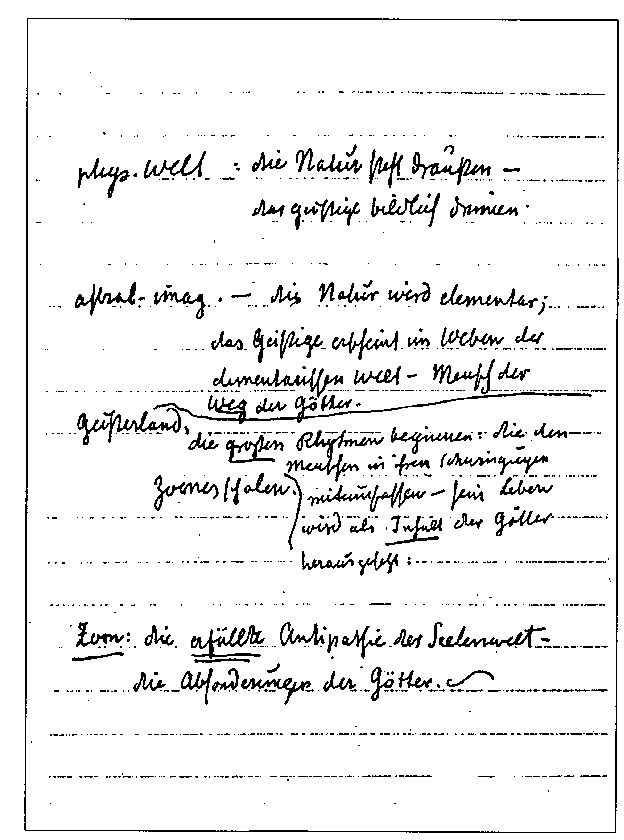 phys. Welt : die Natur steht draußen –
das geistige bildlich drinnen.
astral-imag. – die Natur wird elementar;
das Geistige erscheint im Weben der
elementarischen Welt – Mensch der
Weg der Götter.
Geisterland,
die großen Rhytmen beginnen: die den
Menschen in ihren Schwingungen
Zornesschalen. mitumfassen – sein Leben
wird als Inhalt der Götter
herausgesetzt:
Zorn: die erfüllte Antipathie der Seelenwelt –
die Absonderungen der Götter.